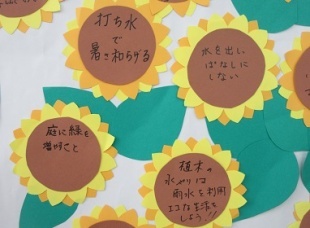 打ち水
で
暑さ和らげる
水を出し
ぱなしに
しない
庭に緑を
植木の
水やりは
雨水を利用
エコな生活を
しよう!!